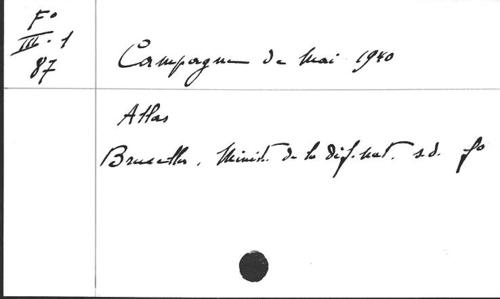 F°
III. 1
87
Campagne de mai 1940
Atlas
Bruxelles, Minist. de la déf. nat. s.d. f°